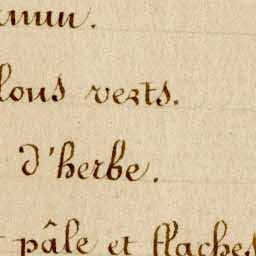 lous verts.
d'herbe.
pâle et flaches